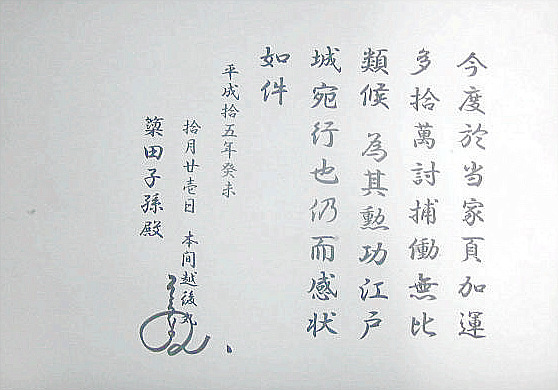 今度於当家頁加運
多拾萬討捕働無比
類候 為其勲功江戸
城宛行也仍而感状
如件
平成拾五年癸未
拾月廿壱日 本間越後丸
簗田子孫殿